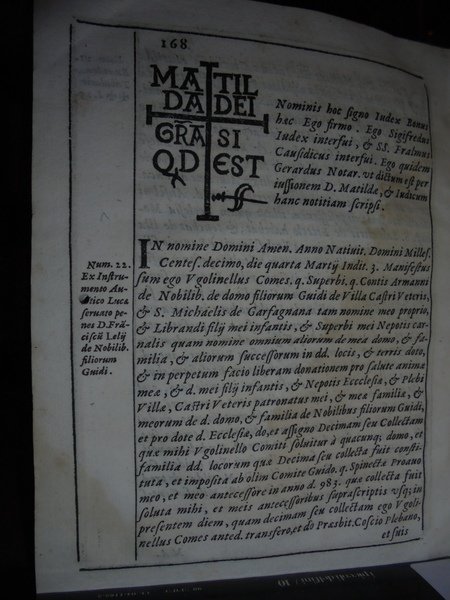 168.
MA TIL
DA DEI
GRA SI
Q,D EST
Nominis hoc signo Iudex Bonus
hæc Ego firmo. Ego Sigifredus
Iudex interfui, & SS. Fralmus
Causidicus interfui. Ego quidem
Gerardus Notar. vt dictum est per
iussionem D. Matildæ, & Iudicum
hanc notitiam scripsi.
Num. 22.
Ex Instru-
mento Au-
tico Lucæ
seruato pe-
nes D. Frã-
ciscũ Lelij
de Nobilib.
filiorum
Guidi.
IN nomine Domini Amen. Anno Natiuit. Domini Millef.
Centes. decimo, die quarta Martij Indit. 3. Manifestus
sum ego Vgolinellus Comes. q. Superbi. q. Contis Armanni
de Nobilib. de domo filiorum Guidi de Villa Castri Veteris,
& S. Michaelis de Garfagnana tam nomine meo proprio,
& Librandi filij mei infantis, & Superbi mei Nepotis car-
nalis quam nomine omnium aliorum de mea domo, & fa-
milia, & aliorum successorum in dd. locis, & terris doto,
& in perpetum facio liberam donationem pro salute animæ
meæ, & d. mei filij infantis, & Nepotis Eccclesiæ, & Plebi
Villæ, Castri Veteris patronatus mei, & meæ familiæ, &
meorum de d. domo, & familia de Nobilibus filiorum Guidi,
et pro dote d. Ecclesiæ, do, et assigno Decimam seu Collectam
quæ mihi Vgolinello Comiti soluitur à quacunq; domo, et
familia dd. locorum quæ Decima seu collecta fuit consti-
tuta, et imposità ab olim Comite Guido. q. Spinettæ Proauo
meo, et meo antecessore in anno d. 983. quæ collecta fuit
soluta mihi, et meis antecessoribus suprascriptis vsq; in
presentem diem, quam decimam seu collectam ego Vgoli-
nellus Comes anted. transfero, et do Præsbit. Coscio Plebano,
et suis